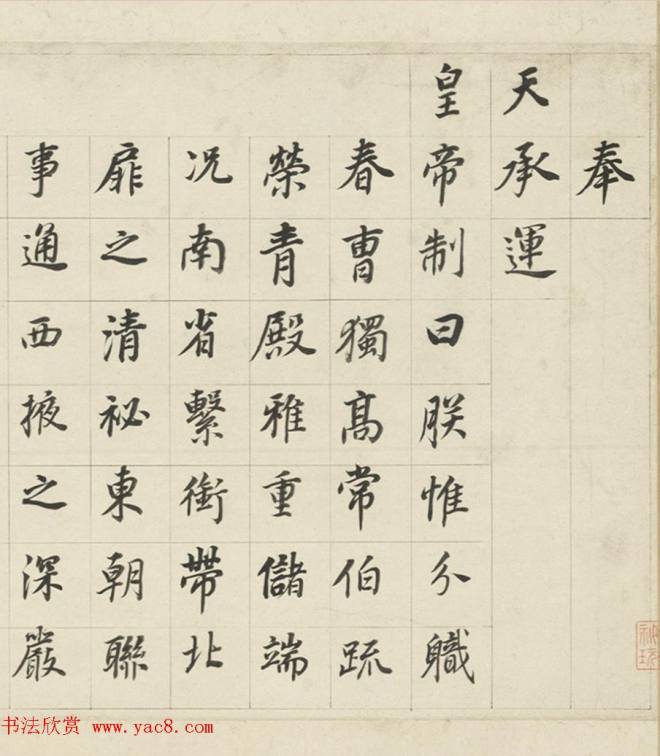 奉
天承運
皇帝制曰朕惟分職
春曺獨高常伯疏
榮青殿雅重儲端
况南省繫銜帶北
扉之清祕東朝聯
事通西掖之深嚴
书法欣赏 www.yac8.com